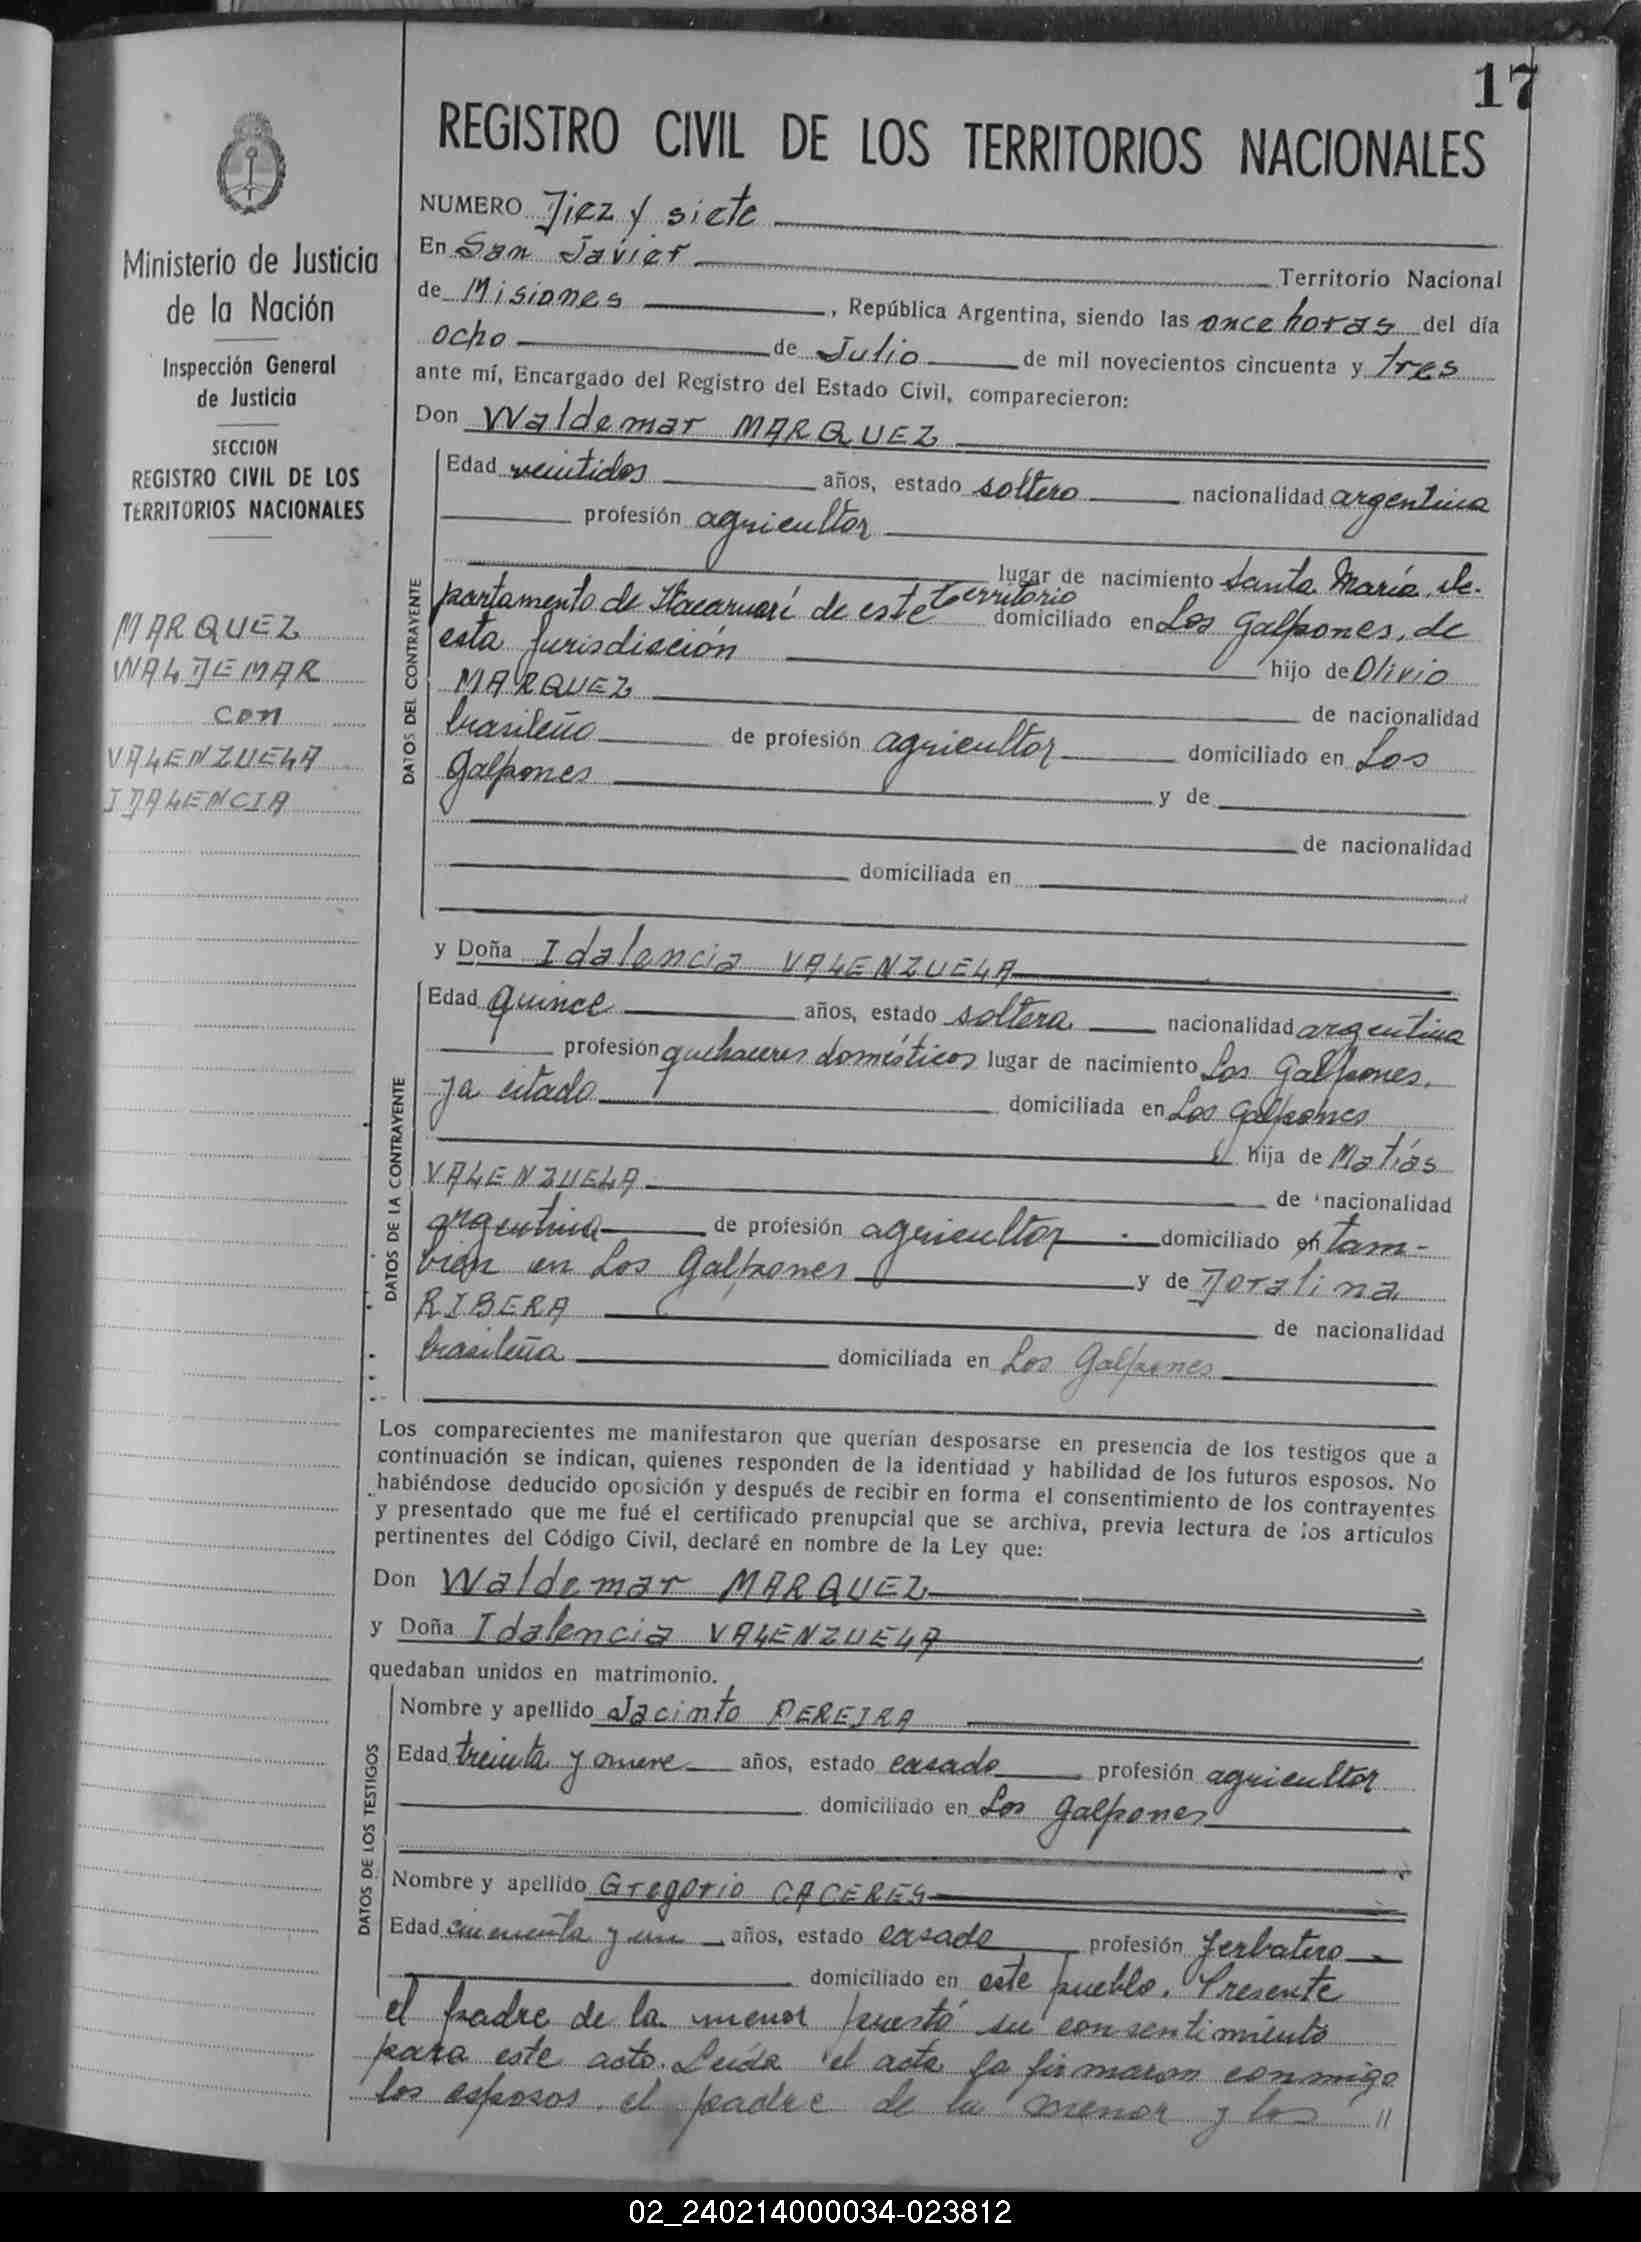 17
REGISTRO CIVIL DE LOS TERRITORIOS NACIONALES
Ministerio de Justicia
de la Nación
Inspección General
de Justicia
SECCION
REGISTRO CIVIL DE LOS
TERRITORIOS NACIONALES
MARQUEZ
WALDEMAR
con
VALENZUELA
IDALENCIA
NUMERO Diez y siete
En San Javier Territorio Nacional
de Misiones, República Argentina, siendo las once horas del día
ocho de Julio de mil novecientos cincuenta y tres
ante mí, Encargado del Registro del Estado Civil, comparecieron:
Don Waldemar MARQUEZ
DATOS DEL CONTRAYENTE
Edad veintidos años, estado soltero nacionalidad argentina
profesión agricultor
lugar de nacimiento Santa María, de-
partamento de Itacaruaré de este territorio domiciliado en Los Galpones, de
esta jurisdicción hijo de Olivio
MARQUEZ de nacionalidad
brasileño de profesión agricultor domiciliado en Los
Galpones y de
de nacionalidad
domiciliada en
y Doña Idalencia VALENZUELA
DATOS DE LA CONTRAYENTE
Edad quince años, estado soltera nacionalidad argentina
profesión quehaceres domésticos lugar de nacimiento Los Galpones,
ya citado domiciliada en Los Galpones
hija de Matías
VALENZUELA de nacionalidad
argentina de profesión agricultor domiciliado en tam-
bien en Los Galpones y de Doralina
RIBERA de nacionalidad
brasileña domiciliada en Los Galpones
Los comparecientes me manifestaron que querían desposarse en presencia de los testigos que a
continuación se indican, quienes responden de la identidad y habilidad de los futuros esposos. No
habiéndose deducido oposición y después de recibir en forma el consentimiento de los contrayentes
y presentado que me fué el certificado prenupcial que se archiva, previa lectura de los artículos
pertinentes del Código Civil, declaré en nombre de la Ley que:
Don Waldemar MARQUEZ
y Doña Idalencia VALENZUELA
quedaban unidos en matrimonio.
DATOS DE LOS TESTIGOS
Nombre y apellido Jacinto PEREIRA
Edad treinta y años, estado casado profesión agricultor
domiciliado en Los Galpones
Nombre y apellido Gregorio CACERES
Edad cincuenta y un años, estado casado profesión yerbatero
domiciliado en este pueblo. Presente
el padre de la menor prestó su consentimiento
para este acto. Leída el acta la firmaron conmigo
los esposos, el padre de la menor y los //
02_240214000034-023812